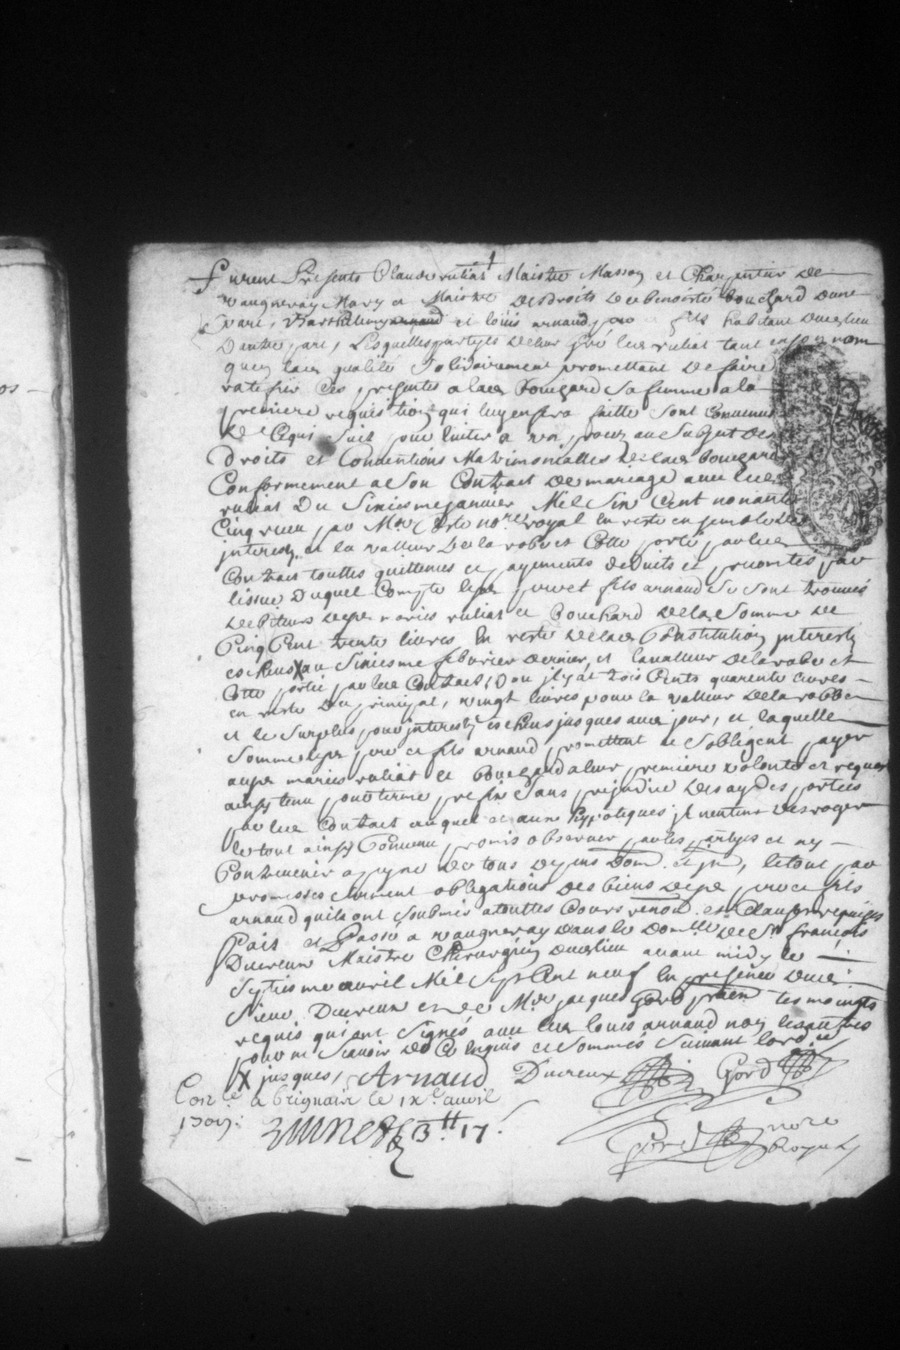 furent Présents Claude rulliat Maistre Masson et Charpentier de
vaugneray Mary et Maistre des droits de benoiste bouchard dune
part, Barthelemy arnaud et louis arnaud son fils habitant dudit lieu
Dautre part, Lesquelles partyes de leur gré led rulliat tant en son nom
quen lad qualité solidairement promettant de faire
ratifier ces presentes a lad bouchard sa femme a la
premiere requisition qui luy en sera faitte sont convenus
de ce qui suit pour eviter a un procez au subjet des
droits et Conventions Matrimonialles de lad bouchard
Conformement a son Contract de mariage avec led
rulliat Du sixiesme janvier Mil six cent nonante
Cinq receu par Me nore royal en reste ensemble des
interests et la valleur de la robe et Cotte porté par led
Contract touttes quittences et payements deduits et
lissue duquel Compte lesd pere et fils arnaud se sont trouvés
debiteurs desd maries rulliat et bouchard de la somme de
Cinq Cent trente livres en reste de lad Constitution interests
escheus X au sixiesme febvrier dernier, et la valleur de la robe et
Cotte portée par led Contract, Dou il y at trois Cents quarente livres
en reste du principal, vingt livres pour la valleur de la robbe
et le surplus pour interests escheus jusques aud jour, et laquelle
somme lesd pere et fils arnaud promettent et sobligent payer
ausd maries rulliat et bouchard a leur premiere volonté et requeste
ainsy tenu pour terme prefix sans prejudice des aydes portées
par led Contract auquel et aux hypoteques il nentend desroger
le tout ainsy Convenu promis observer par les partyes et ny
Contrevenir a peyne de tous despens dom. et in, le tout par
promesses serment obligations des biens desd pere et fils
arnaud quils ont soubmis a touttes Cours renon. et Clauses requises
Fait et Passé a vaugneray dans le domlle de Sr françois
Ducreux Maistre Chirurgien dud lieu avant midy le
septiesme avril Mil sept Cent neuf En presence dud
sieur Ducreux et de Me jacques Gord tesmoingts
requis qui ont signés avec led louis arnaud non les autres
pour ne scavoir de ce enquis et sommés suivant lord.ce
X jusques, Arnaud Ducreux Gord
Con.lé a brignais le ixe avril
1709:
3tt 17s
Gord nore
Royal